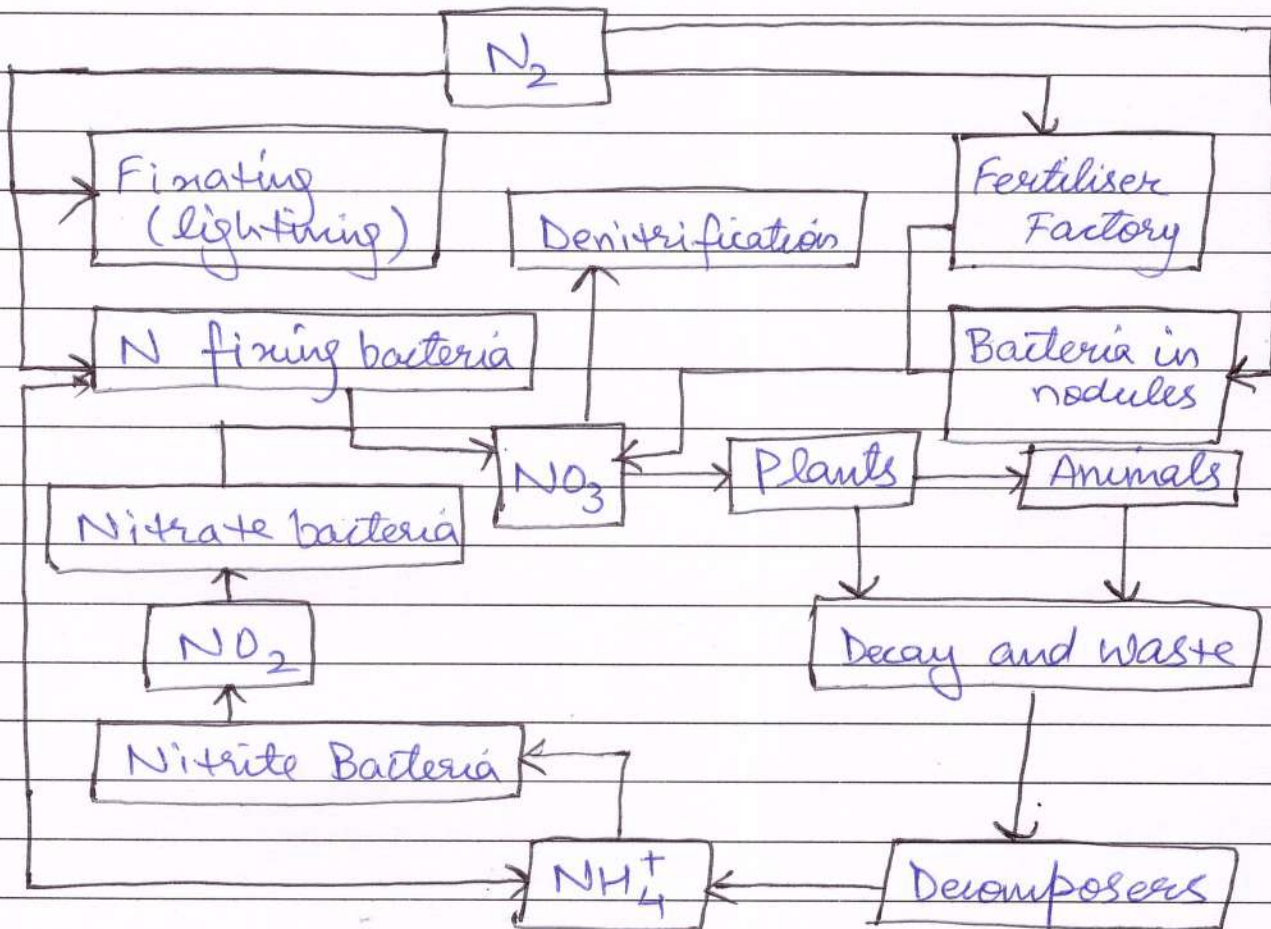 N₂
Fixating
(lightining)
Denitrification
Fertiliser
Factory
N fixing bacteria
Bacteria in
nodules
NO₃
Plants
Animals
Nitrate bacteria
NO₂
Decay and waste
Nitrite Bacteria
NH₄⁺
Decomposers